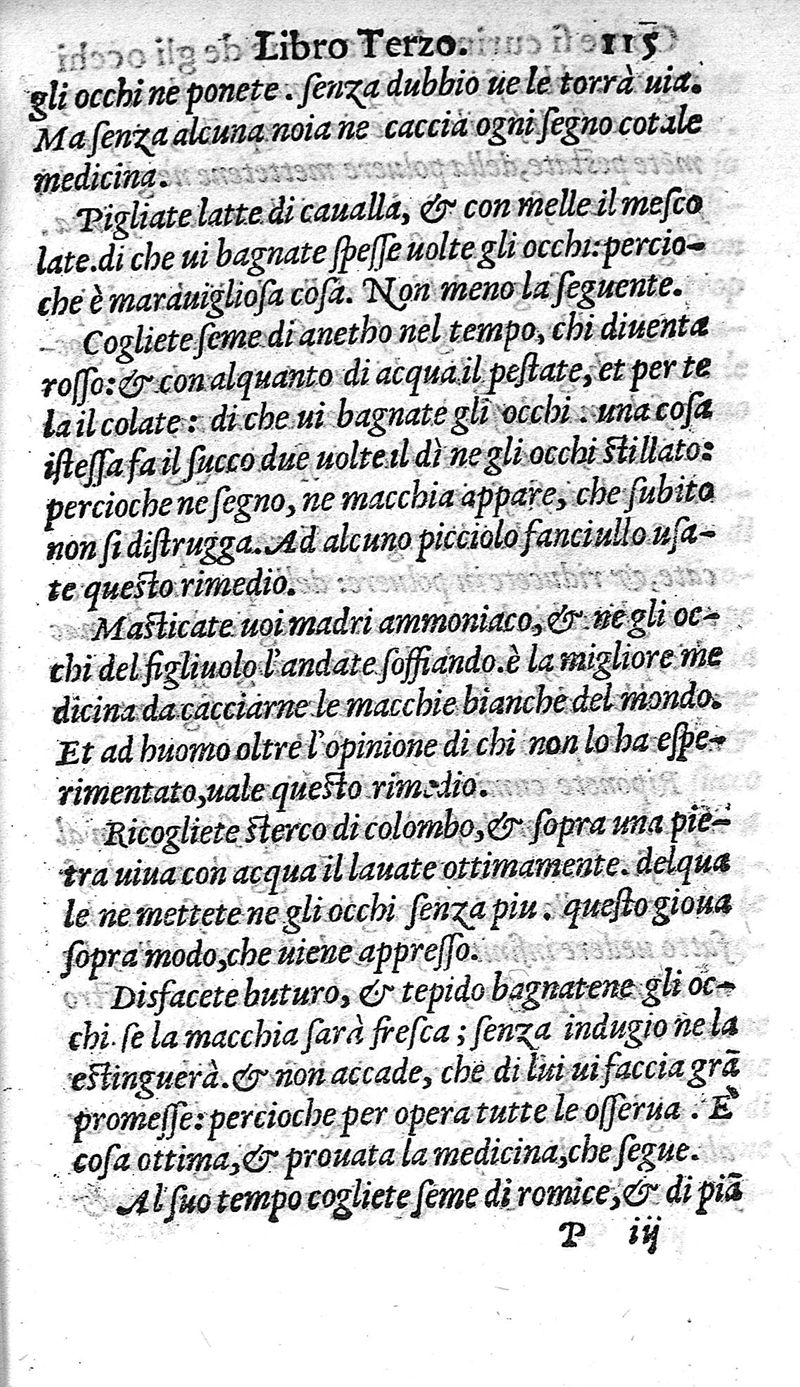 Libro Terzo. 115
gli occhi ne ponete. ſenza dubbio ue le torrà uia.
Ma ſenza alcuna noia ne caccia ogni ſegno cotale
medicina.
Pigliate latte di caualla, & con melle il meſco
late. di che ui bagnate ſpeſſe uolte gli occhi: percio-
che è marauiglioſa coſa. Non meno la ſeguente.
Cogliete ſeme di anetho nel tempo, chi diuenta
roſſo: & con alquanto di acqua il peſtate, et per te
la il colate: di che ui bagnate gli occhi. una coſa
iſteſſa fa il ſucco due uolte il dì ne gli occhi ſtillato:
percioche ne ſegno, ne macchia appare, che ſubito
non ſi diſtrugga. Ad alcuno picciolo fanciullo uſa-
te queſto rimedio.
Maſticate uoi madri ammoniaco, & ne gli oc-
chi del figliuolo l'andate ſoffiando. è la migliore me
dicina da cacciarne le macchie bianche del mondo.
Et ad huomo oltre l'opinione di chi non lo ha eſpe-
rimentato, uale queſto rimedio.
Ricogliete ſterco di colombo, & ſopra una pie-
tra uiua con acqua il lauate ottimamente. delqua
le ne mettete ne gli occhi ſenza piu. queſto gioua
ſopra modo, che uiene appreſſo.
Disfacete buturo, & tepido bagnatene gli oc-
chi. ſe la macchia ſarà freſca; ſenza indugio ne la
eſtinguerà. & non accade, che di lui ui faccia grã
promeſſe: percioche per opera tutte le oſſerua. È
coſa ottima, & prouata la medicina, che ſegue.
Al ſuo tempo cogliete ſeme di romice, & di piã
P iij